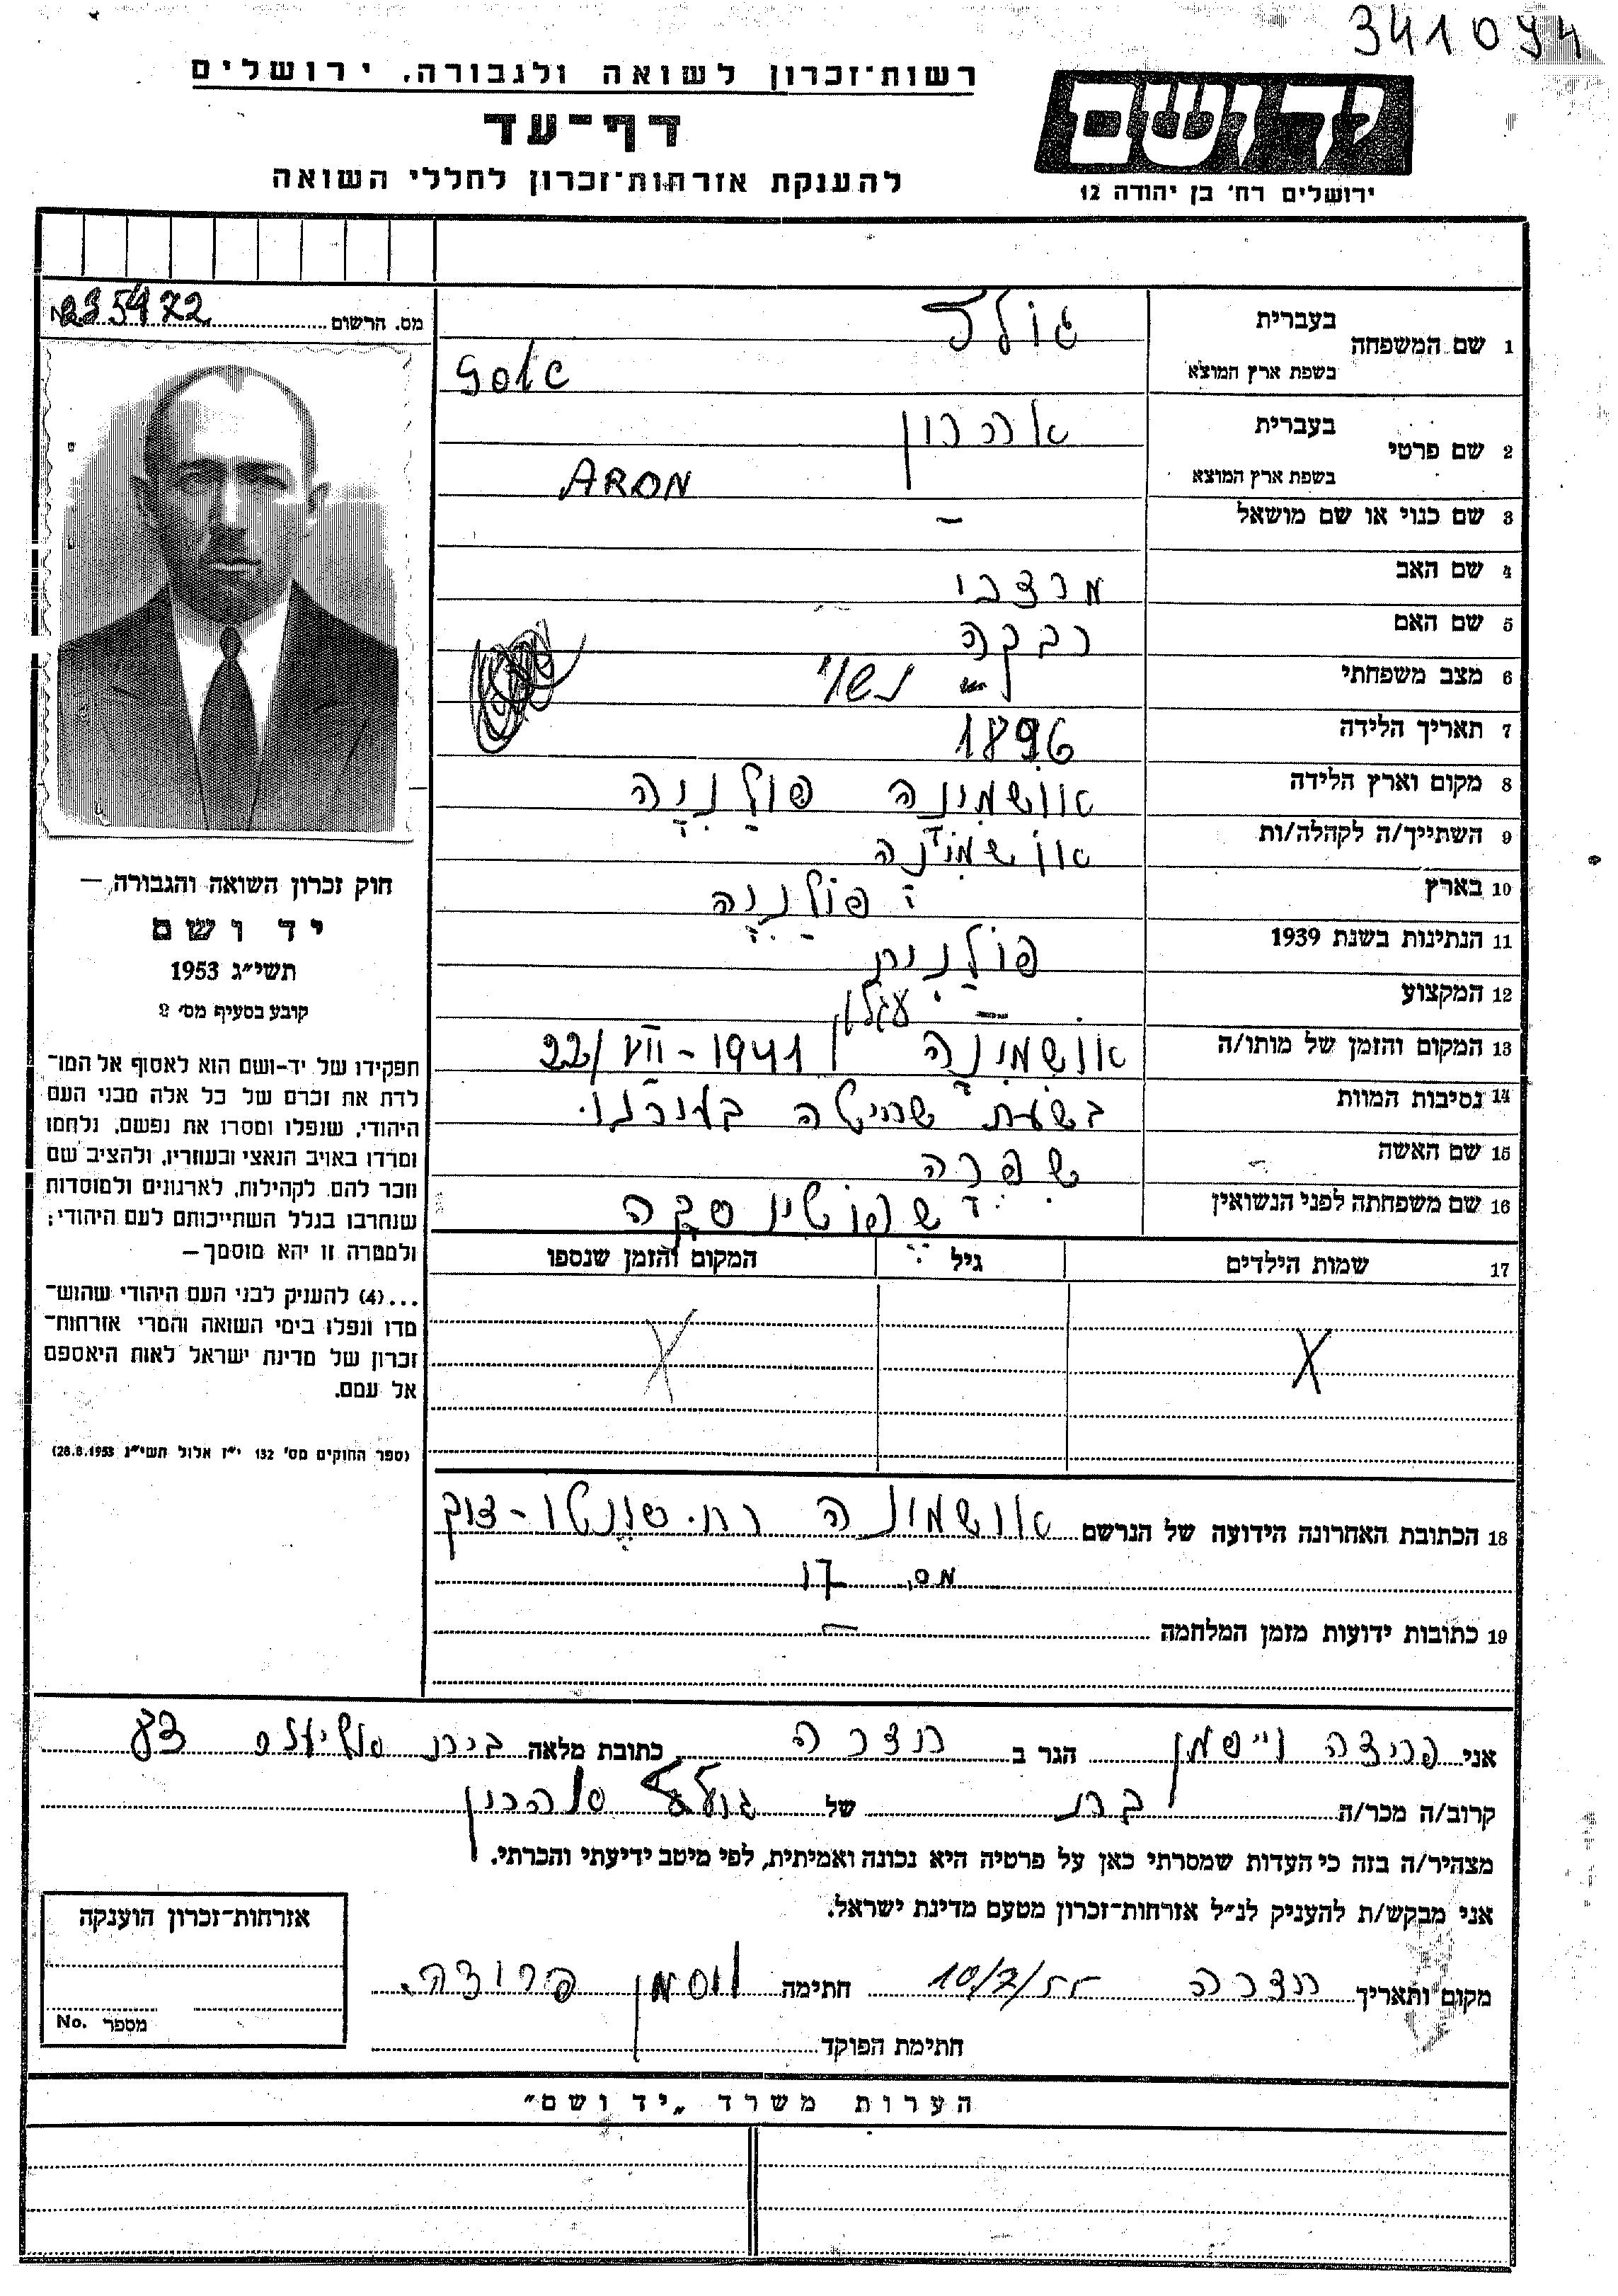 341094
רשות־זכרון לשואה ולגבורה, ירושלים
דף־עד
להענקת אזרחות־זכרון לחללי השואה
יד ושם
ירושלים רח' בן יהודה 12
מס. הרשום 235472
1 שם המשפחה
בעברית גולד
בשפת ארץ המוצא
2 שם פרטי
בעברית אהרון
בשפת ארץ המוצא ARON
3 שם כנוי או שם מושאל -
4 שם האב מרדכי
5 שם האם רבקה
6 מצב משפחתי נשוי
7 תאריך הלידה 1896
8 מקום וארץ הלידה אושמינה פולניה
9 השתייך/ה לקהלה/ות אושמינה
10 בארץ פולניה
11 הנתינות בשנת 1939 פולנית
12 המקצוע עגלון
13 המקום והזמן של מותו/ה אושמינה 22/VII-1941
14 נסיבות המוות בשעת שחיטה
15 שם האשה שפרה
16 שם משפחתה לפני הנשואין
17 שמות הילדים גיל המקום והזמן שנספו
X X
18 הכתובת האחרונה הידועה של הנרשם אושמינה רח.
מס. 17
19 כתובות ידועות מזמן המלחמה -
חוק זכרון השואה והגבורה, —
יד ושם
תשי״ג 1953
קובע בסעיף מס' 2
תפקידו של יד-ושם הוא לאסוף אל המו־
לדת את זכרם של כל אלה מבני העם
היהודי, שנפלו ומסרו את נפשם, נלחמו
ומרדו באויב הנאצי ובעוזריו, ולהציב שם
וזכר להם, לקהילות, לארגונים ולמוסדות
שנחרבו בגלל השתייכותם לעם היהודי;
ולמטרה זו יהא מוסמך —
...(4) להעניק לבני העם היהודי שהוש־
מדו ונפלו בימי השואה והמרי אזרחות־
זכרון של מדינת ישראל לאות היאספם
אל עמם.
(ספר החוקים מס' 132 י״ז אלול תשי״ג 28.8.1953)
אני פרידה וייסמן הגר ב חדרה כתובת מלאה בית
קרוב/ה מכר/ה בת של גולד אהרון
מצהיר/ה בזה כי העדות שמסרתי כאן על פרטיה היא נכונה ואמיתית, לפי מיטב ידיעתי והכרתי.
אני מבקש/ת להעניק לנ״ל אזרחות־זכרון מטעם מדינת ישראל.
מקום ותאריך חדרה 10/7/55 חתימה וסמן פרידה
חתימת הפוקד
אזרחות-זכרון הוענקה
מספר No.
הערות משרד „יד ושם״